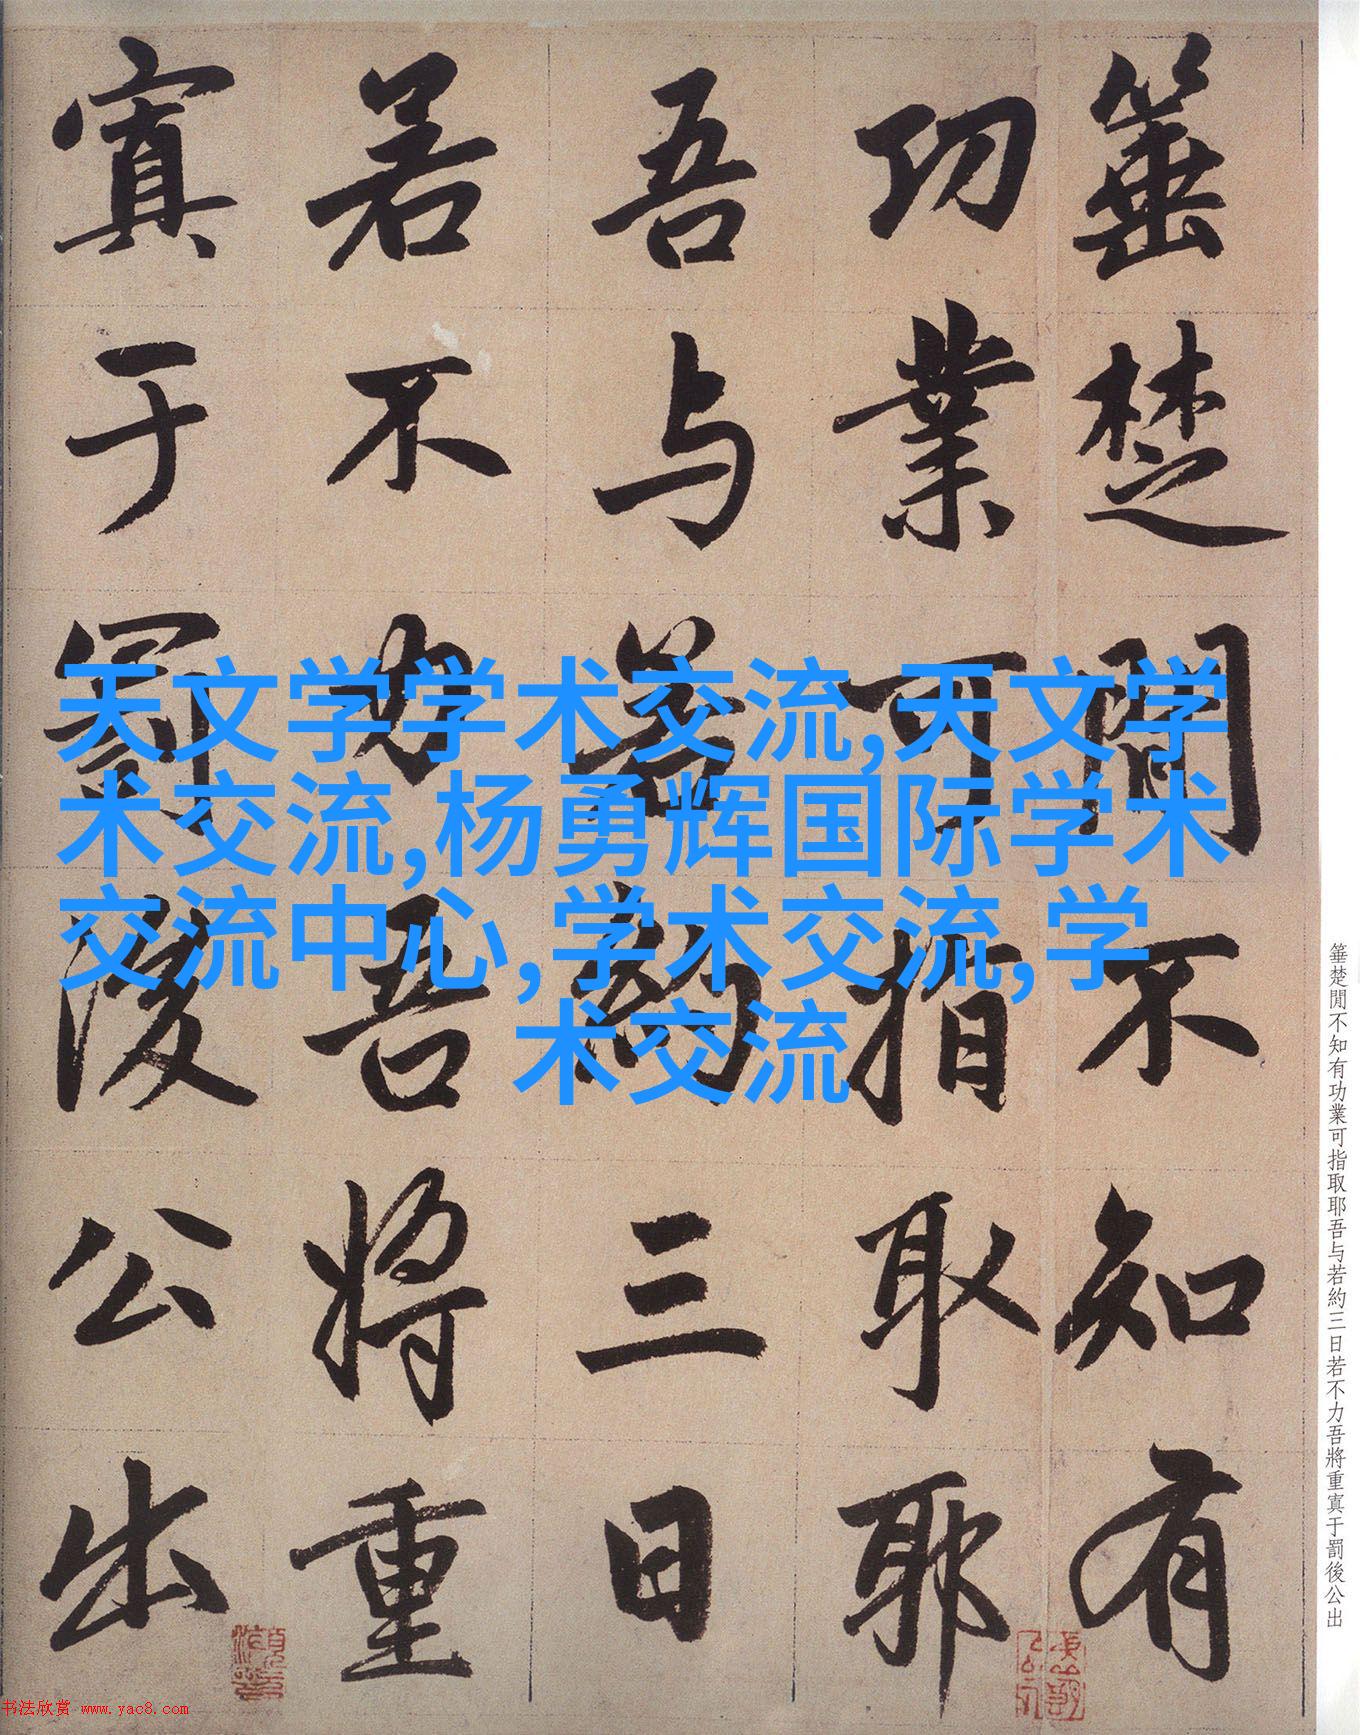 箠楚閒不知有
功業可指取耶
吾与若約三日
若不力吾將重
寘于罰後公出
天文学学术交流,天文学
术交流,杨勇辉国际学术
交流中心,学术交流,学
术交流
箠楚閒不知有功業可指取耶吾与若約三日若不力吾將重寘于罰後公出
书法欣赏 www.yac8.com